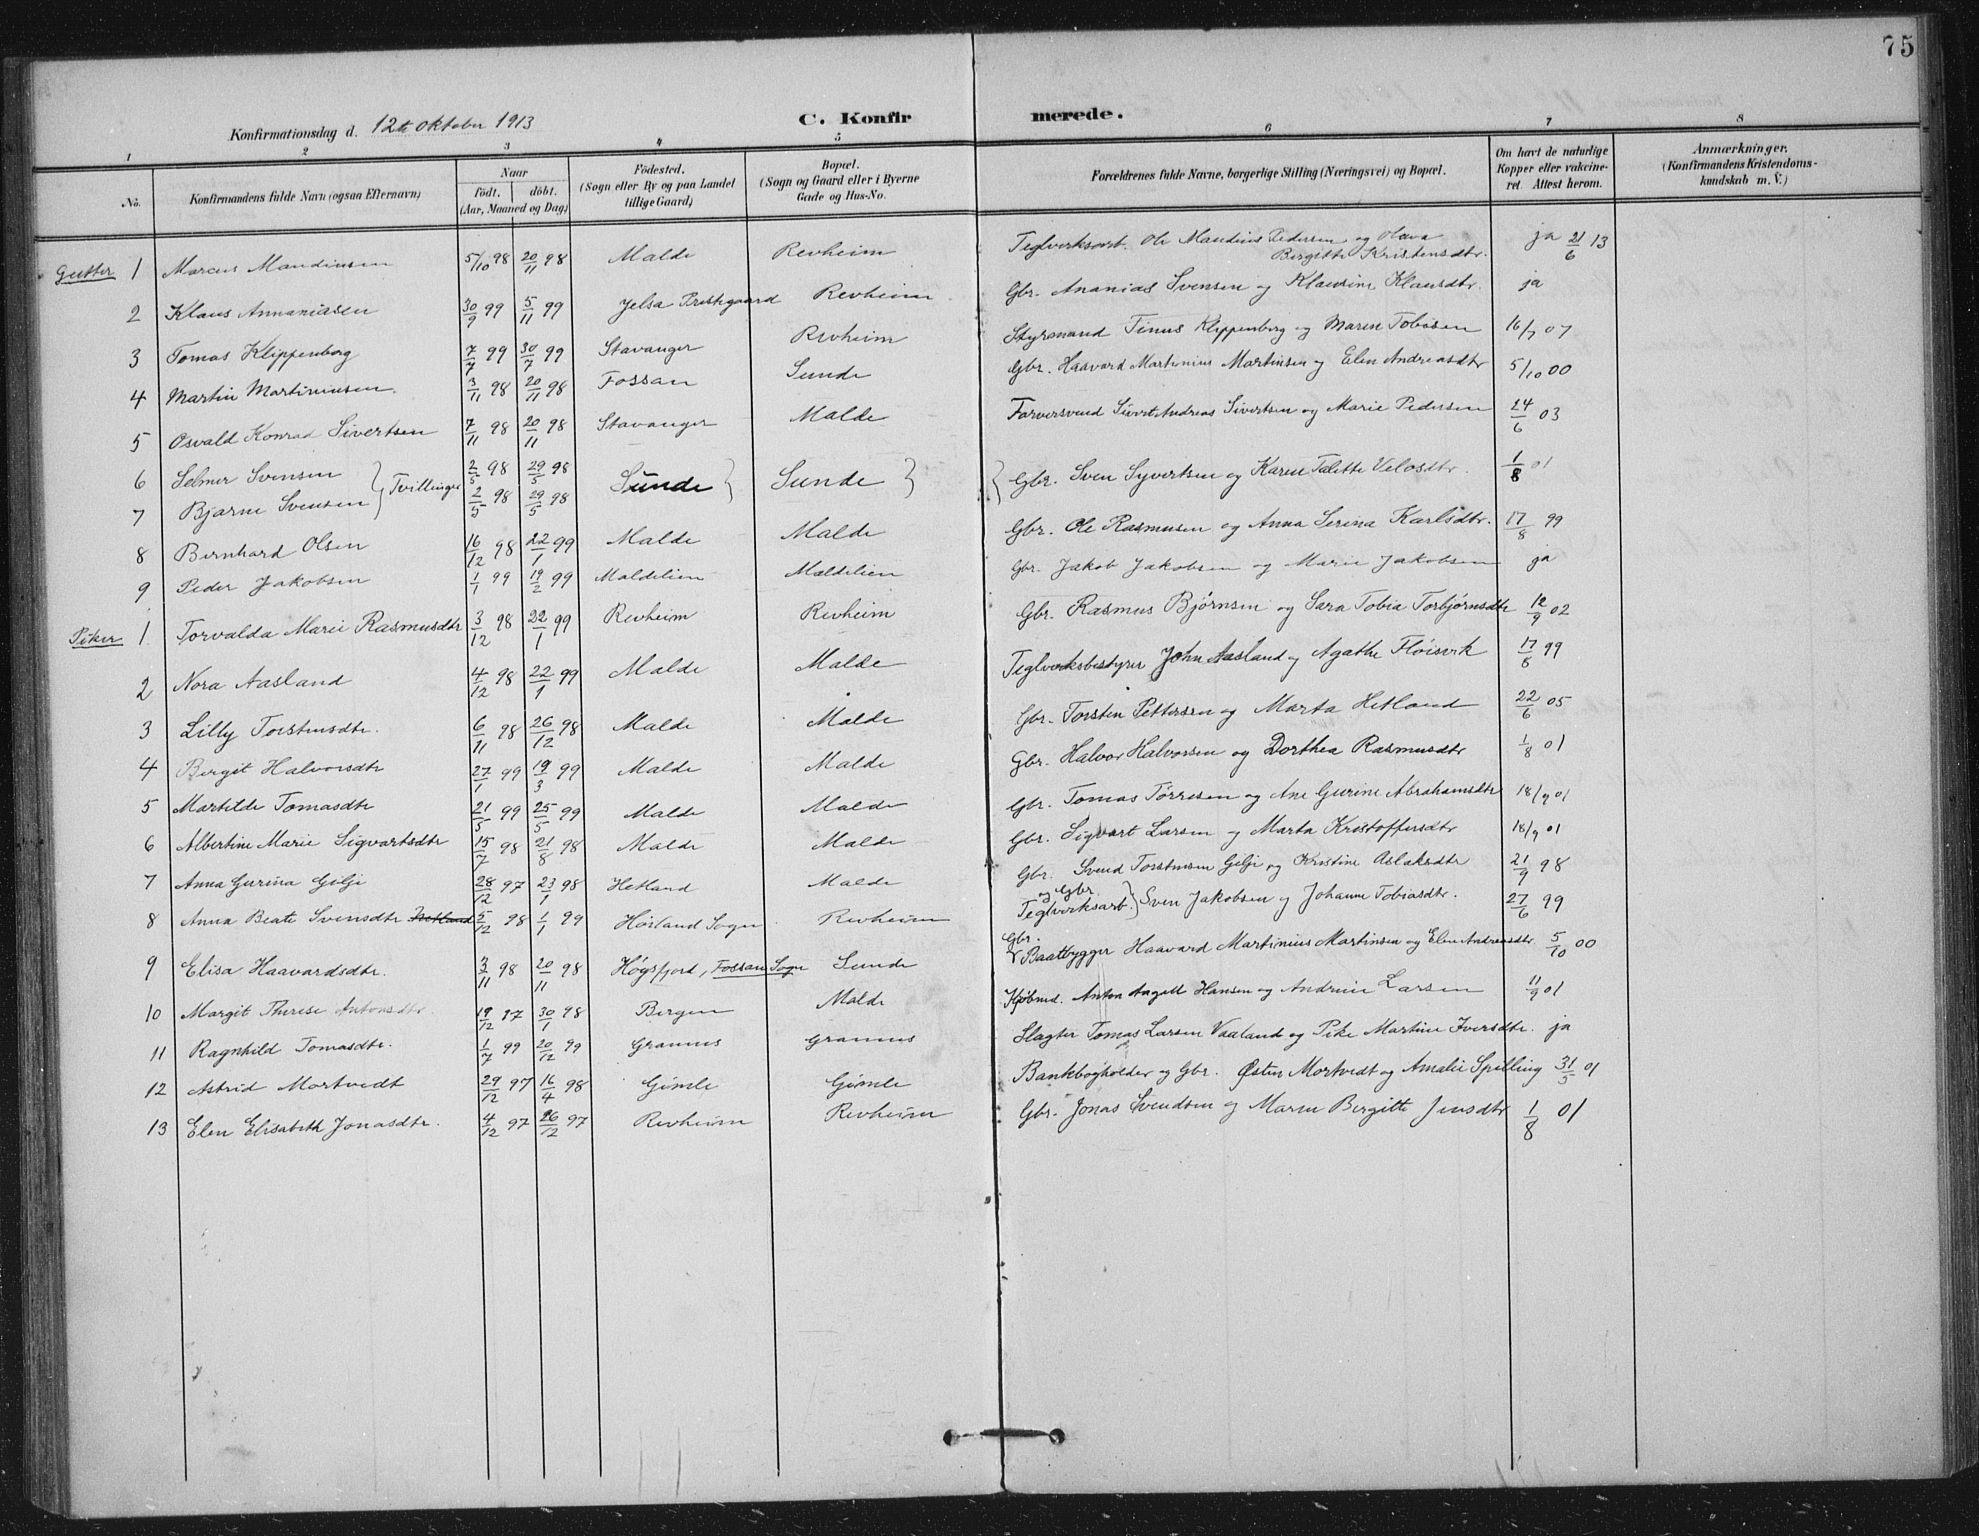 75
Konfirmationsdag d. 12te Oktober 1913 C. Konfirmerede.
1 2 3 4 5 6 7 8
No. Konfirmandens fulde Navn (ogsaa Efternavn) Naar födt. döbt. (Aar, Maaned og Dag) Födested. (Sogn eller By og paa Landet tillige Gaard) Bopæl. (Sogn og Gaard eller i Byerne Gade og Hus-No. Forældrenes fulde Navne, borgerlige Stilling (Næringsvei) og Bopæl. Om havt de naturlige Kopper eller vakcineret. Attest herom. Anmærkninger. (Konfirmandens Kristendomskundskab m. V.)
Gutter 1 Marcus Maudiusen 5/10 98 20/11 98 Malde Revheim Teglverksarb. Ole Maudius Pedersen og Olava Birgitte Kristensdtr. ja 21/6 13
2 Klaus Annaniasen 30/9 99 5/11 99 Jelsa Prestegaard Revheim Gbr. Ananias Svensen og Klausine Klausdtr. ja
3 Tomas Klippenberg 7/7 99 30/7 99 Stavanger Revheim Styrmand Tinus Klippenberg og Maren Tobiasen 16/7 07
4 Martin Martiniusen. 3/11 98 20/11 98 Fossan Sunde Gbr. Haavard Martinius Martinsen og Elen Andreasdtr 5/10 00
5 Osvald Konrad Sivertsen 7/11 98 20/11 98 Stavanger Malde Farversvend Sivert Andreas Sivertsen og Marie Pedersen 24/6 03
6 Selmer Svensen } Tvillinger 2/5 98 29/5 98 Sunde } Sunde } { Gbr. Sven Syvertsen og Karen Talette Velosdtr. 1/8 01
7 Bjarne Svensen 2/5 98 29/5 98
8 Bernhard Olsen 16/12 98 22/1 99 Malde Malde Gbr. Ole Rasmusen og Anna Serina Karlsdtr. 17/8 99
9 Peder Jakobsen 1/1 99 19/2 99 Maldelien Maldelien Gbr. Jakob Jakobsen og Marie Jakobsen ja
Piker 1. Torvalda Marie Rasmusdtr 3/12 98 22/1 99 Revheim Revheim Gbr. Rasmus Bjørnsen og Sara Tobia Torbjørnsdtr 12/9 02
2 Nora Aasland 4/12 98 22/1 99 Malde Malde Teglverksbestyrer John Aasland og Agathe Fløisvik 17/8 99
3 Lilly Torstensdtr. 6/11 98 26/12 98 Malde Malde Gbr. Torsten Pettersen og Marta Hetland 22/6 05
4 Birgit Halvorsdtr 27/1 99 19/3 99 Malde Malde Gbr. Halvor Halvorsen og Dorthea Rasmusdtr 1/8 01
5 Martilde Tomasdtr 21/5 99 25/5 99 Malde Malde Gbr. Tomas Tørresen og Ane Gurine Abrahamsdtr 18/9 01
6 Albertine Marie Sigvartsdtr 15/7 98 21/8 98 Malde Malde Gbr. Sigvart Larsen og Marta Kristoffersdtr 18/9 01
7 Anna Gurina Gilje 28/12 97 23/1 98 Hetland Malde Gbr. Svend Torstensen Gilje og Kristine Aslaksdtr 21/9 98
8 Anna Beate Svensdtr Hetland 5/12 98 1/1 99 Høiland Sogn Revheim og Gbr. Teglverksarb. } Sven Jakobsen og Johanne Tobiasdtr. 27/6 99
9 Elisa Haavardsdtr. 3/11 98 20/11 98 Høgsfjord, Fossan Sogn Sunde Gbr. Baatbygger Haavard Martinius Martinsen og Elen Andreasdtr. 5/10 00
10 Margit Therese Antonsdtr. 19/12 97 30/1 98 Bergen Malde Kjøbmd. Anton Angell Hansen og Andrine Larsen 11/9 01
11 Ragnhild Tomasdtr. 1/7 99 20/12 99 Grannes Grannes Slagter Tomas Larsen Vaaland og Pike Martine Iversdtr. ja
12 Astrid Mortvedt 29/12 97 16/4 98 Gimle Gimle Bankbogholder og Gbr. Østen Mortvedt og Amalie Spilling 31/5 01
13 Elen Elisabeth Jonasdtr. 4/12 97 26/12 97 Revheim Revheim Gbr. Jonas Svendsen og Maren Bergitte Jensdtr 1/8 01